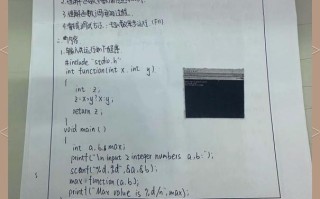 3.理解函数调用的过程
二.内容
1.输入及运行如下程序
#include "stdio.h"
int function(int x, int y)
{
int z;
z=x>y?x:y;
return z;
}
void main()
{
int a,b,max;
printf("\n input 2 integer numbers a,b:");
scanf("%d,%d",&a,&b);
max=function(a,b);
printf("Max value is %d/n",max);